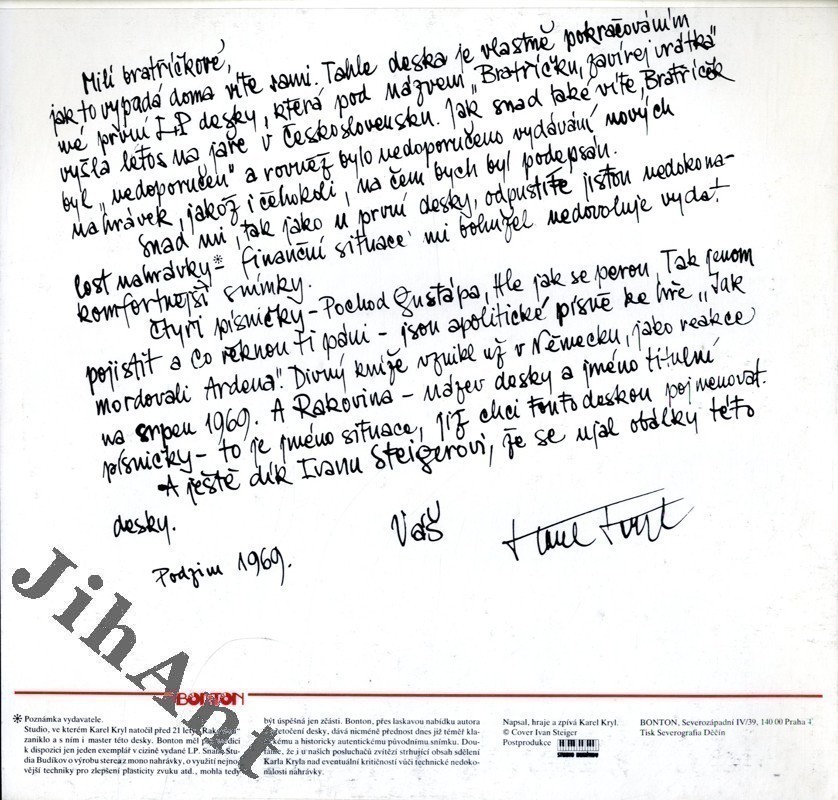 Milí bratříčkové,
jak to vypadá doma víte sami. Tahle deska je vlastně pokračováním
mé první LP desky, která pod názvem „Bratříčku, zavírej vrátka"
vyšla letos na jaře v Československu. Jak snad také víte, Bratříček
byl „nedoporučen" a rovněž bylo nedoporučeno vydávání nových
nahrávek, jakož i čehokoli, na čem bych byl podepsán.
Snad mi, tak jako u první desky, odpustíte jistou nedokona-
lost nahrávky* - finanční situace mi bohužel nedovoluje vydat
komfortnejší snímky.
Čtyři písničky - Pochod Gustapa, Hle jak se perou, Tak jenom
pojistit a Co řeknou ti páni - jsou apolitické písně ke hře „Jak
mordovali Ardena". Divný kníže vznikl už v Německu, jako reakce
na srpen 1969. A Rakovina - název desky a jméno titulní
písničky - to je jméno situace, jíž chci touto deskou pojmenovat.
A ještě dík Ivanu Steigerovi, že se ujal obálky této
desky.
Váš Karel Kryl
Podzim 1969.
JihAnt
BONTON
* Poznámka vydavatele.
Studio, ve kterém Karel Kryl natočil před 21 lety „Rakovinu"
zaniklo a s ním i master této desky. Bonton měl
k dispozici jen jeden exemplář v cizině vydané LP. Snaha Stu-
dia Budíkov o výrobu sterea z mono nahrávky, o využití nejno-
vější techniky pro zlepšení plasticity zvuku atd., mohla tedy
být úspěšná jen zčásti. Bonton, přes laskavou nabídku autora
přetočení desky, dává nicméně přednost dnes již téměř kla-
sickému a historicky autentickému původnímu snímku. Dou-
fáme, že i u našich posluchačů zvítězí strhující obsah sdělení
Karla Kryla nad eventuální kritičností vůči technické nedoko-
nalosti nahrávky.
Napsal, hraje a zpívá Karel Kryl.
© Cover Ivan Steiger
Postprodukce
BONTON, Severozápadní IV/39, 140 00 Praha 4
Tisk Severografia Děčín